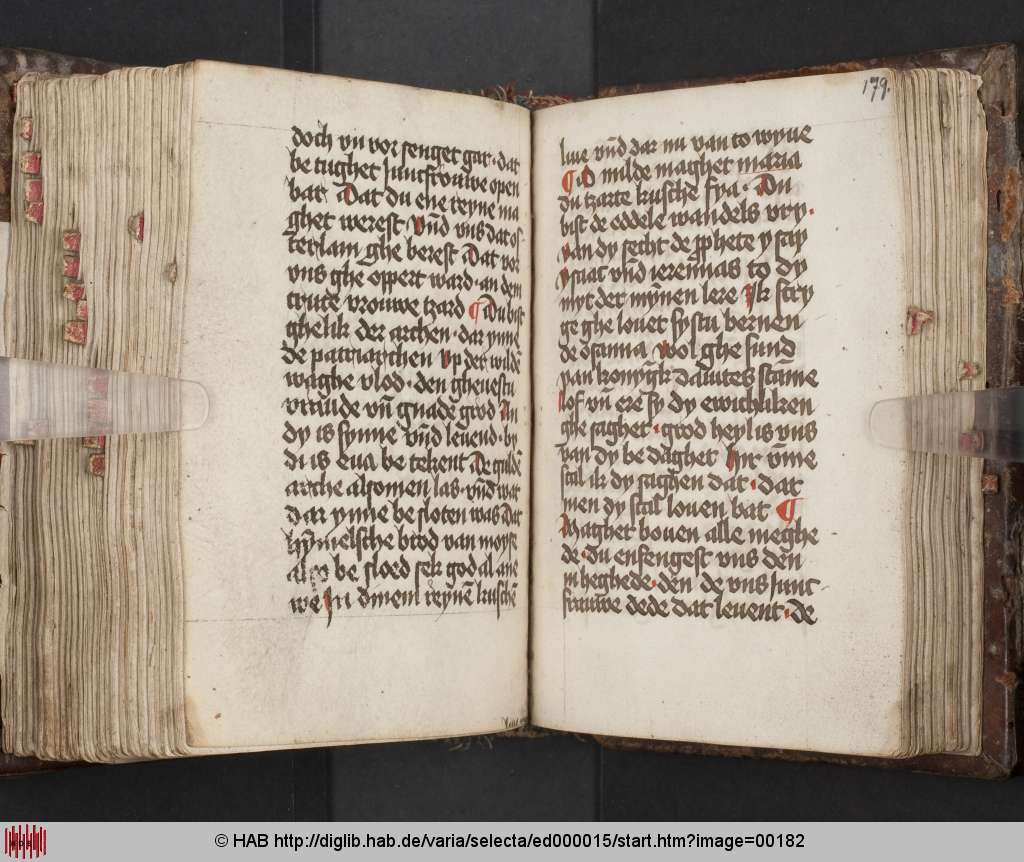 doch vn̄ vor senget gar · dat
be tughet Juncfrouwe open
bar Dat du ene reyne ma
ghet werest Vnd vns dat os
terlam ghe berest Dat vor
vns ghe offert ward · an dem
cruce vrouwe tzard ¶ Du bist
ghelik der archen · dar ynne
de patriarchen Vp der wildē
waghe vlod · den ghevestu
vraude vn̄ gnade grod An
dy is synne vnd levend · by
di is eua be tekent De guldē
arche alsomen las · vnd wat
dar ynne be sloten was dat
hȳmelsche brod van moyse
also be sloed sek god al ane
we In dinem reynē kuschē
179.
live vnd dar nu van to wyve
¶ O milde maghet maria
du tzarte kusche fya · Du
bist de eddele wandels vry ·
van dy secht de pphete
ysaac vnd ieremias to dy
myt der mȳnen lere Ik
ge ghe louet systu bernen
de osanna wol ghe sund
van konyngk dauites stāme
lof vn̄ ere sy dy ewichliken
ghe saghet · grod heyl is vns
van dy be daghet Hir vmme
scal ik dy sagghen dat · dat
men dy scal loven bat ¶
Maghet boven alle meghe
de · du enfengest vns den
in heghede · den de vns Junc
frauwe dede dat levent · de
© HAB http://diglib.hab.de/varia/selecta/ed000015/start.htm?image=00182